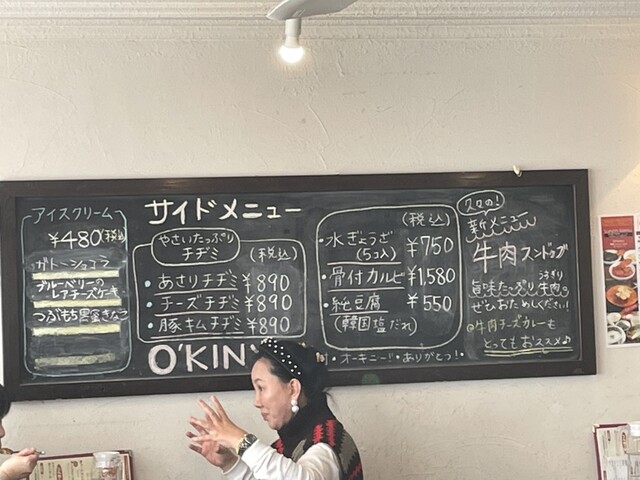 アイスクリーム
¥480(税込)
ガトーショコラ
ブルーベリーの
レアチーズケーキ
つぶもち黒蜜きなこ
サイドメニュー
やさいたっぷり
チヂミ
(税込)
・あさりチヂミ ¥890
・チーズチヂミ ¥890
・豚キムチヂミ ¥890
O'KIN
(税込)
・水ぎょうざ ¥750
(5コ入)
・骨付カルビ ¥1,580
・純豆腐 ¥550
(韓国塩だれ)
・オーキニード・ありがとっ!・
久々の!
新メニュー
牛肉スンドゥブ
旨味たっぷり牛肉の
ぜひ、おためしください!
牛肉チーズカレーも
とってもおススメ♪